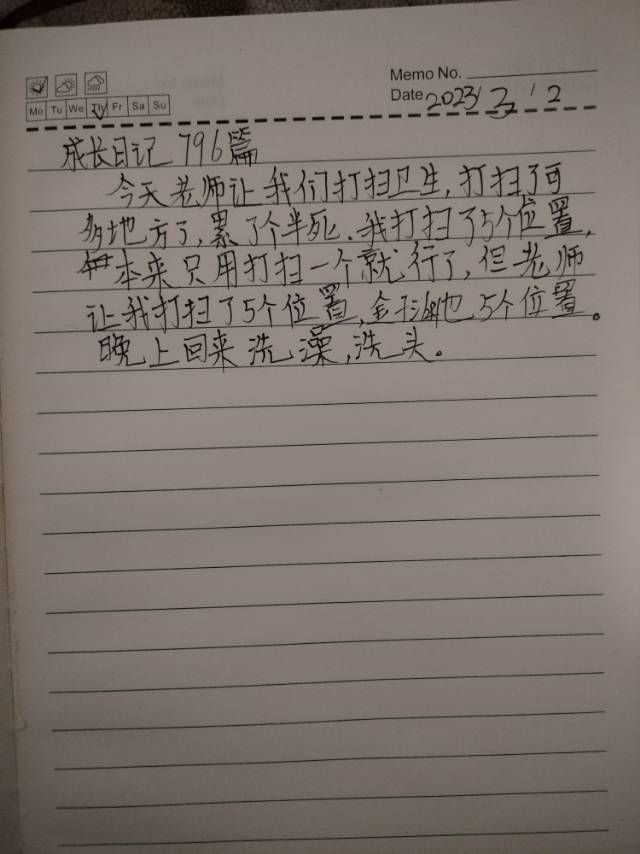 Memo No.
Mo Tu We Th Fr Sa Su
Date 2023/3/2
成长日记 796篇
今天老师让我们打扫卫生,打扫了可
多地方了,累了个半死.我打扫了5个位置,
本来只用打扫一个就行了,但老师
让我打扫了5个位置,金形她也5个位置。
晚上回来洗澡,洗头。